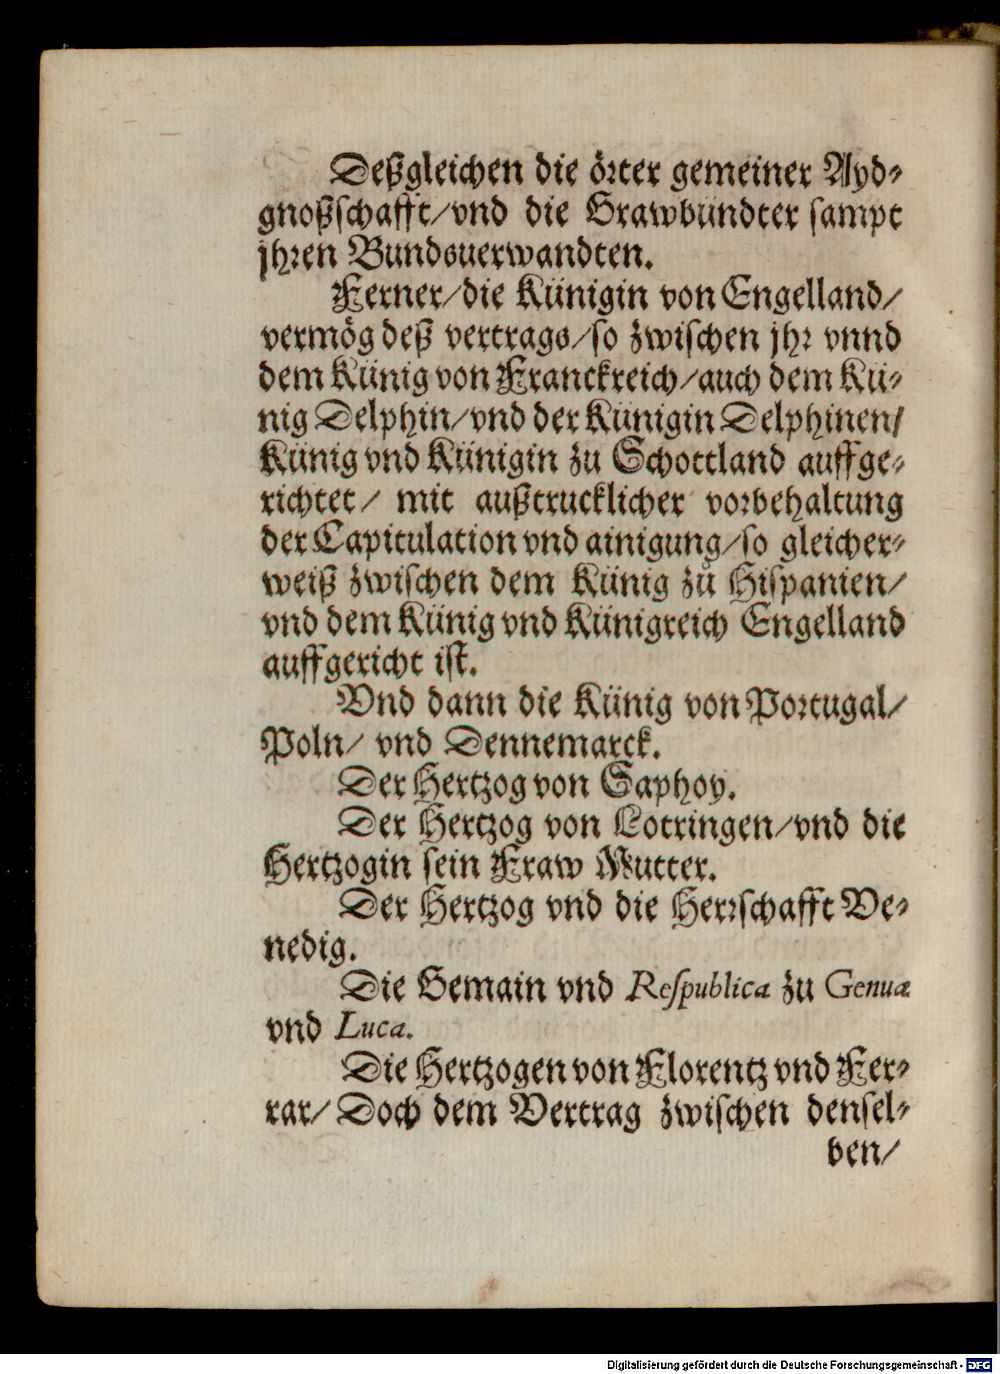 Deßgleichen die örter gemeiner Ayd⸗
gnoßschafft/vnd die Grawbündter sampt
jhren Bundsuerwandten.
Ferner/die Künigin von Engelland/
vermög deß vertrags/so zwischen jhr vnnd
dem Künig von Franckreich/auch dem Kü⸗
nig Delphin/vnd der Künigin Delphinen/
Künig vnd Künigin zu Schottland auffge⸗
richtet/ mit außtrucklicher vorbehaltung
der Capitulation vnd ainigung/so gleicher⸗
weiß zwischen dem Künig zů Hispanien/
vnd dem Künig vnd Künigreich Engelland
auffgericht ist.
Vnd dann die Künig von Portugal/
Poln/ vnd Dennemarck.
Der Hertzog von Saphoy.
Der Hertzog von Lotringen/vnd die
Hertzogin sein Fraw Mutter.
Der Hertzog vnd die Herrschafft Ve⸗
nedig.
Die Gemain vnd Respublica zu Genua
vnd Luca.
Die Hertzogen von Florentz vnd Fer⸗
rar/ Doch dem Vertrag zwischen densel⸗
ben/
Digitalisierung gefördert durch die Deutsche Forschungsgemeinschaft - DFG